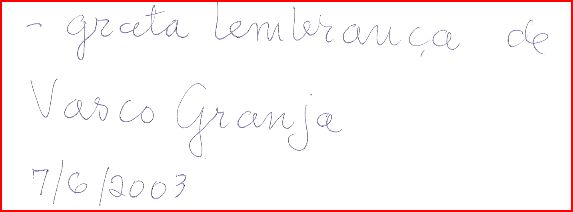 - grata lembrança de
Vasco Granja
7/6/2003